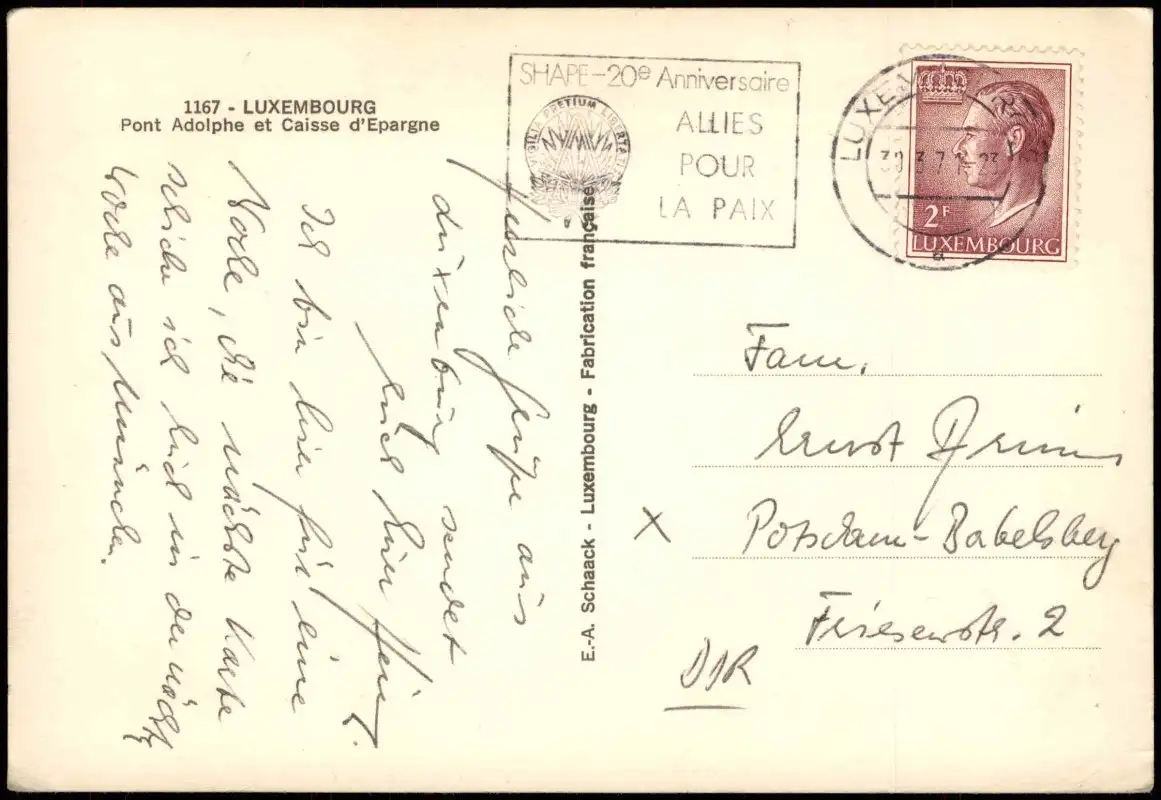 1167 - LUXEMBOURG
Pont Adolphe et Caisse d'Epargne
SHAPE-20e Anniversaire
ALLIES
POUR
LA PAIX
VIGILIA PRETIUM LIBERTATIS
LUXEMBOURG
2F
LUXEMBOURG
E.-A. Schaack - Luxembourg - Fabrication française
Herzliche Grüße aus
Luxemburg sendet
Euch Euer Heinz.
Ich bin hier für eine
Woche, die nächste Karte
schicke ich Euch in der nächst
Woche aus München.
Fam.
Ernst
Potsdam-Babelsberg
Friesenstr. 2
DDR
X